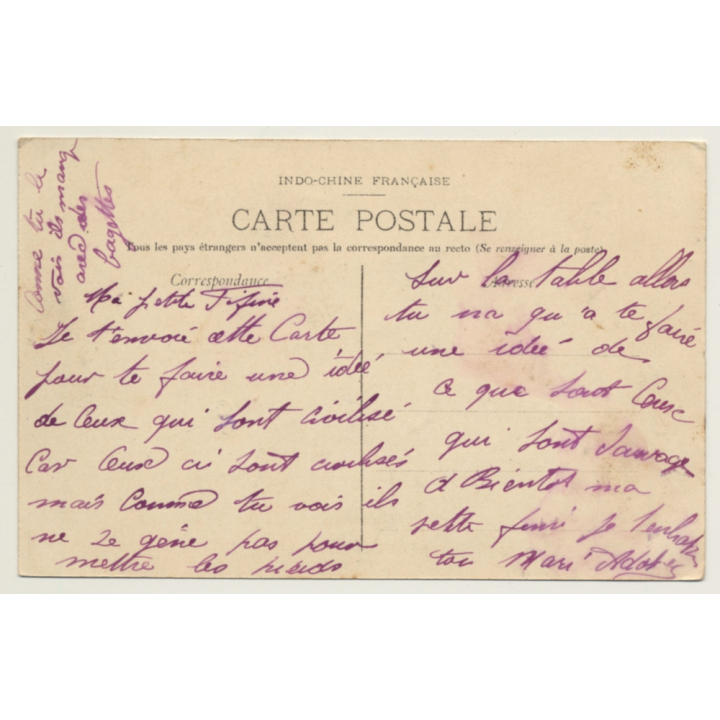 INDO-CHINE FRANÇAISE
CARTE POSTALE
Tous les pays étrangers n'acceptent pas la correspondance au recto (Se renseigner à la poste)
Correspondance
Adresse
Ma petite Fifine
Je t'envoie cette Carte
pour te faire une idée
de Ceux qui sont civilisé
Car Ceux ci sont civilisés
mais Comme tu vois ils
ne se gêne pas pour
mettre les pieds
sur la table allors
tu na qu'a te faire
une idée de
ce que sont Ceux
qui sont sauvage
A Bientot ma
ton Mari
Comme tu le
vois ils mang
avec des
bagettes